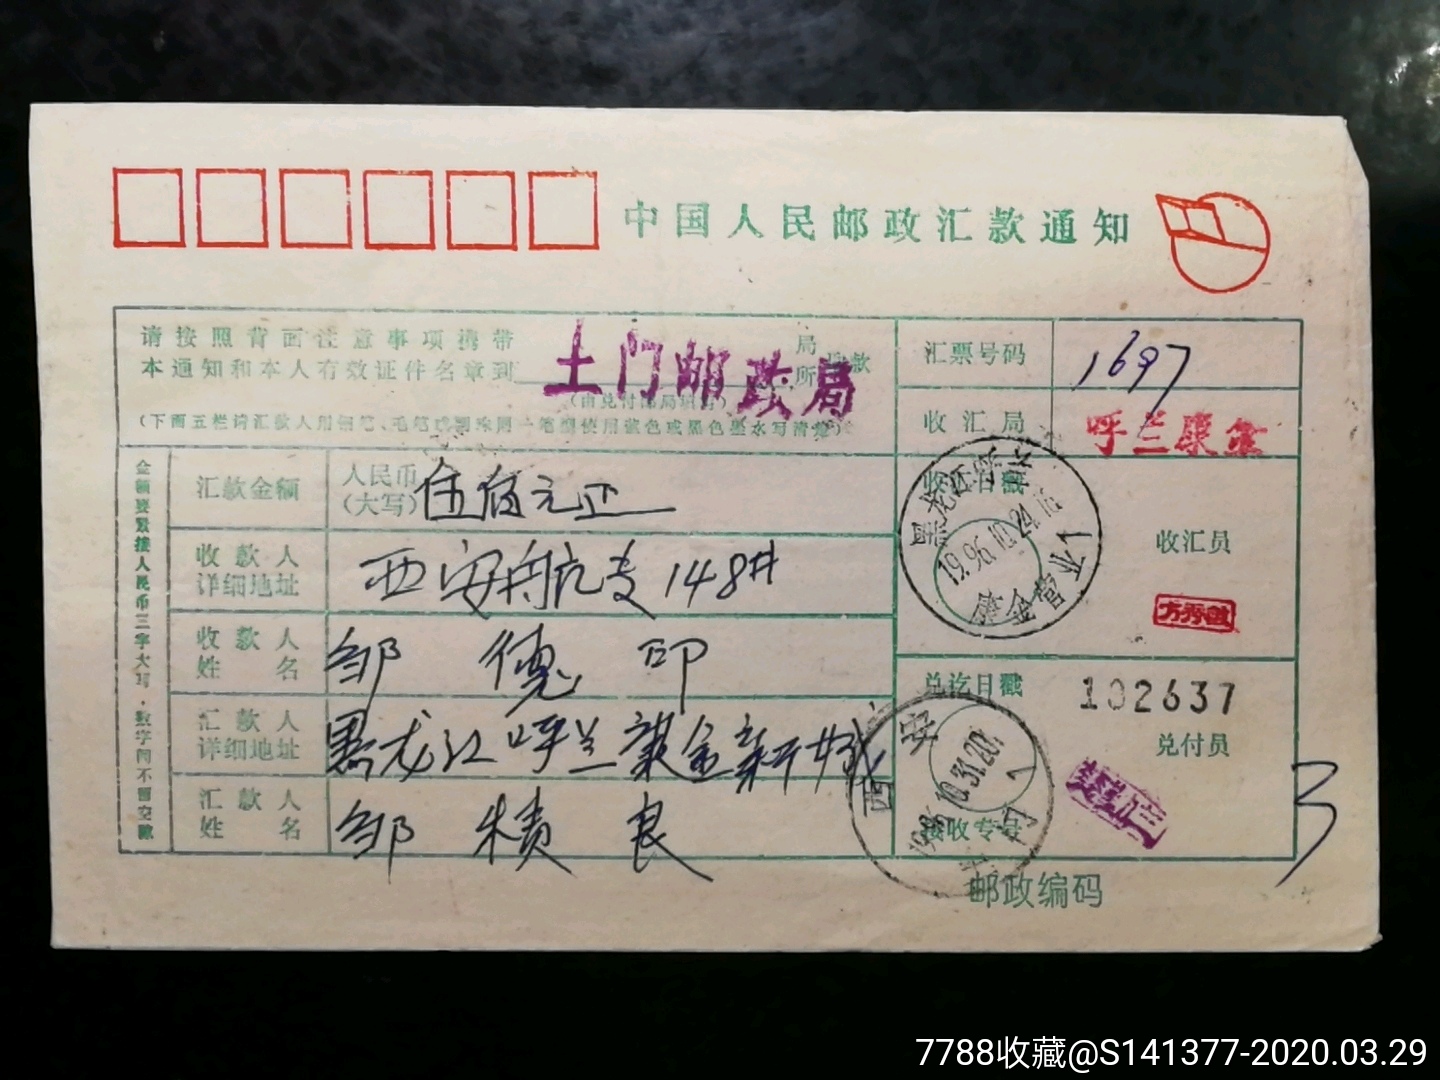 中国人民邮政汇款通知
请按照背面注意事项携带
本通知和本人有效证件名章到
土门邮政局
局
所
取款
(由兑付邮局填写)
(下面五栏请汇款人用钢笔、毛笔或圆珠笔一笔划使用蓝色或黑色墨水写清楚)
汇票号码
1697
收汇局
呼兰康金
金额要紧接人民币三字大写，数字间不留空隙
汇款金额
人民币
(大写)
伍佰元正
收款人
详细地址
西安航专148#
收款人
姓名
邹德印
汇款人
详细地址
黑龙江呼兰康金新开城
汇款人
姓名
邹积良
收汇日戳
黑龙江呼兰
1996.10.24.16
康金营业1
收汇员
兑讫日戳
102637
兑付员
西安
1996.10.31.20
接收专号
邮政编码
3
7788收藏@S141377-2020.03.29